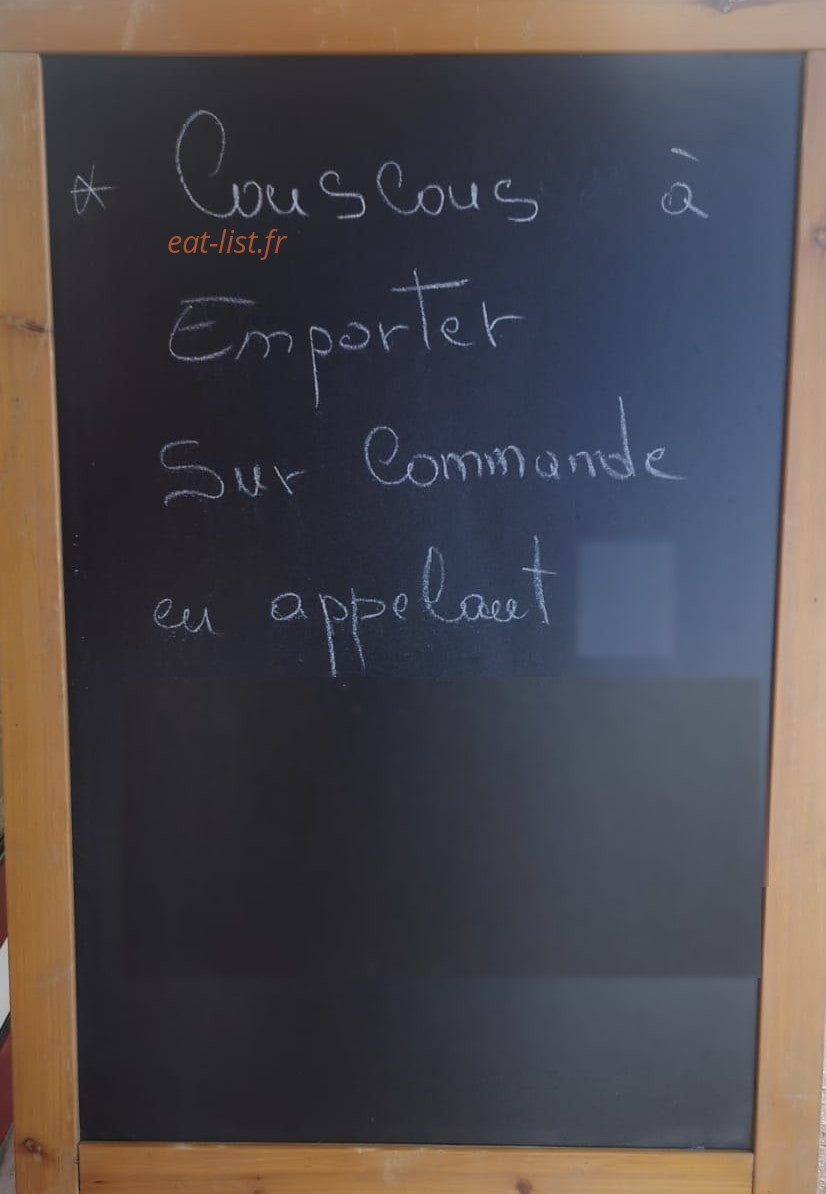 * Couscous à
eat-list.fr
Emporter
Sur Commande
en appelant